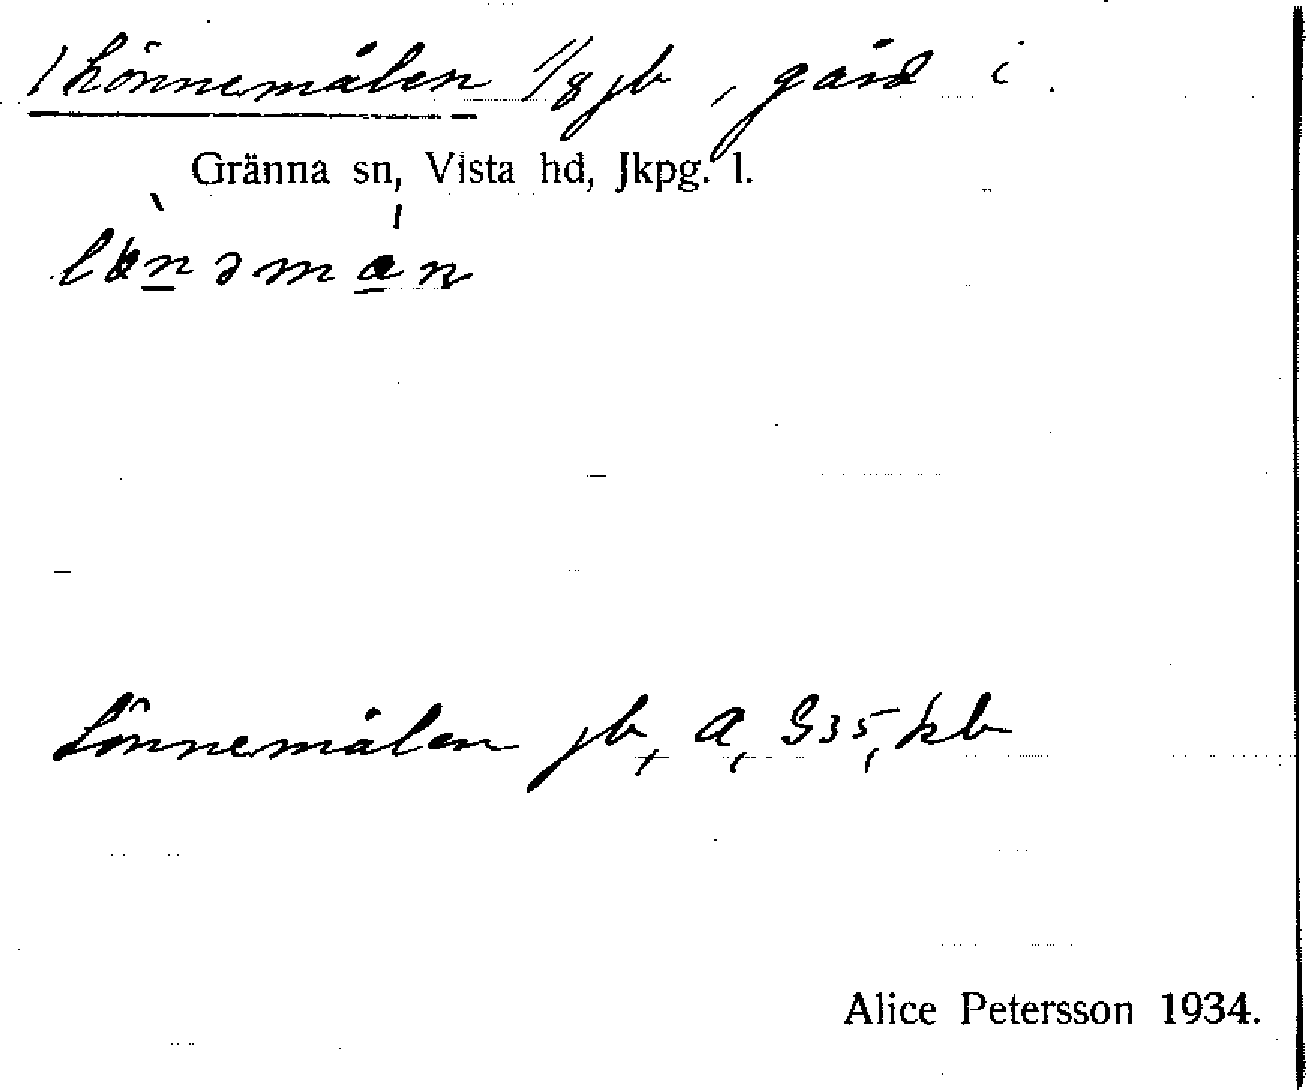 /Lönnemålen 1/8 jb, gård i
Gränna sn, Vista hd, Jkpg. l.
Lönnemålen jb, A, G35, kb
Alice Petersson 1934.